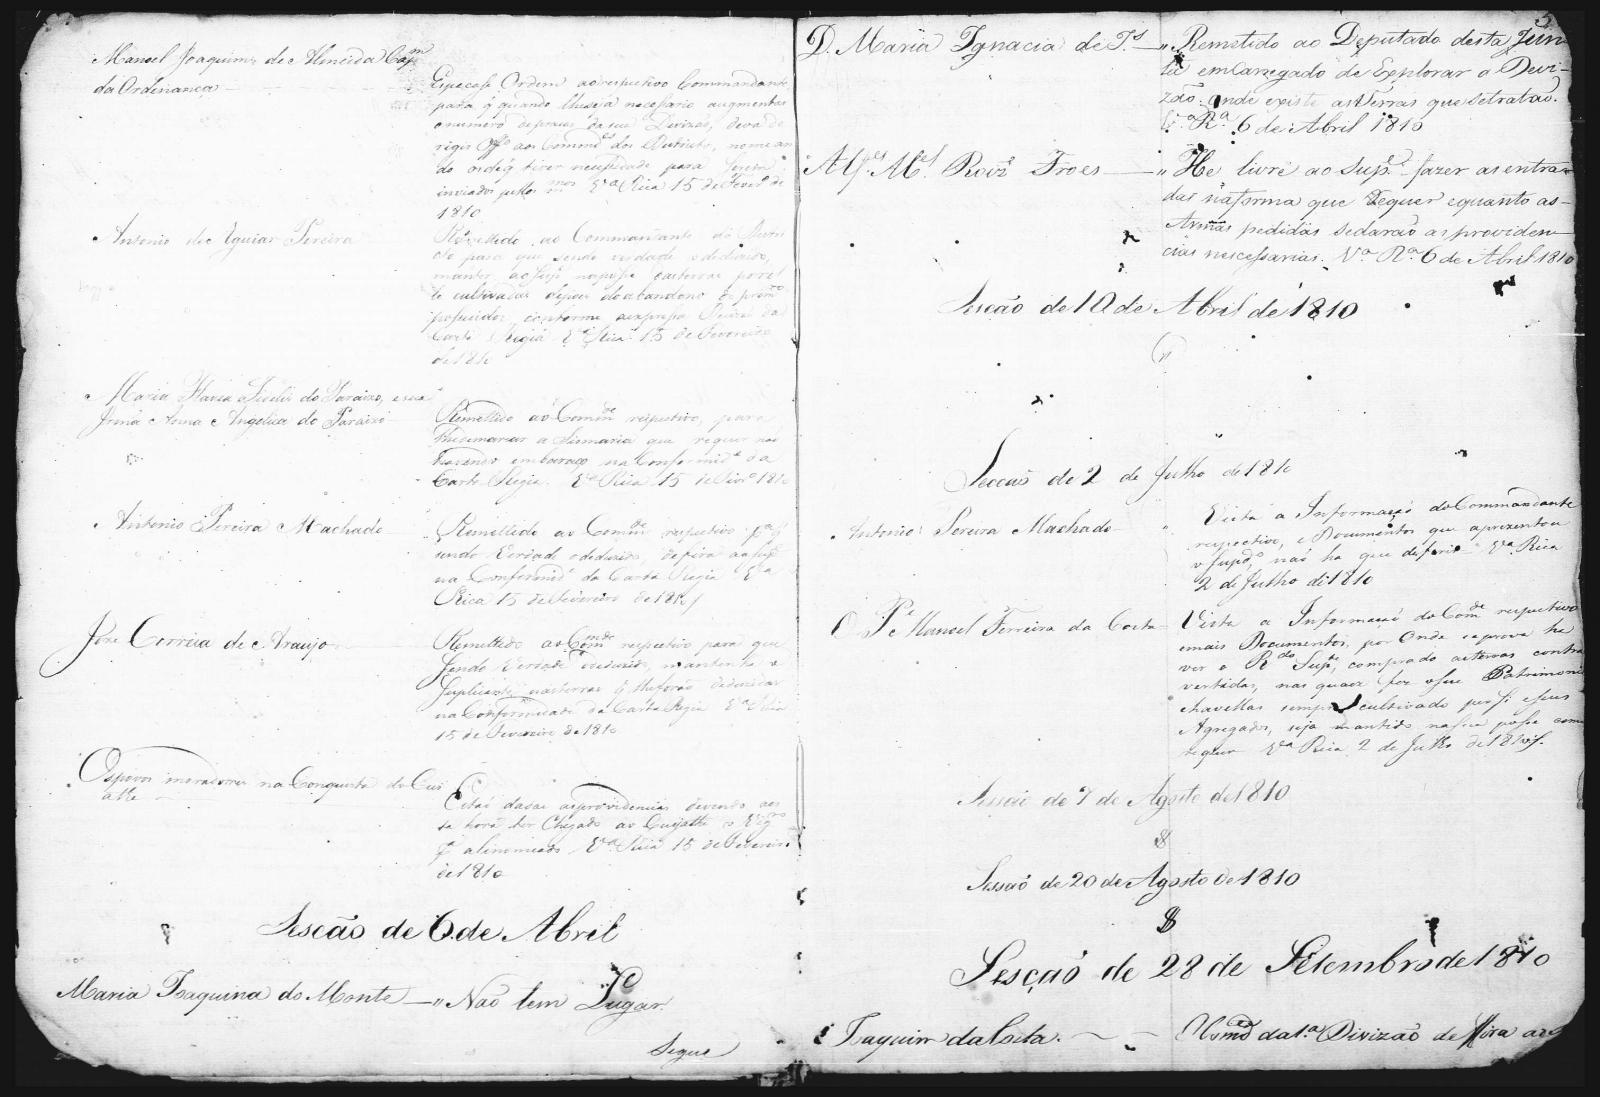 Manoel Joaquim de Almeida Capm
da Ordenança
Espeça-se Ordem ao respectivo Commandante,
para q quando lhe seja necesario augmentar
o numero de praças da sua Divizão, deva di
rigir Off.o aos Commd.es dos Destrictos, nomean
do os de q tiver necessidade para serem
inviados pellos mmos Va Rica 15 de Fever.o de
1810
Antonio de Aguiar Pereira
Remettido ao Commandante do Destri
cto para que sendo verdade o deduzido,
manter ao Sup.e na posse das terras por el
le cultivadas depois do abandono do prim.o
possuidor, conforme a expressa Dispoz. da
Carta Regia Va Rica 15 de Fevereiro
de 1810
Maria Flavia Fidelis do Paraizo, e sua
Irmã Anna Angelica do Paraizo
Remettido ao Comm.de respectivo, para
lhe demarcar a Sismaria que requer não
havendo embaraço na Conformid.e da
Carta Regia. Va Rica 15 de Fev.o 1810
Antonio Pereira Machado
Remettido ao Comm.de respectivo pa q
sendo Verdad.e o deduzido, defira ao sup.e
na Conformid.e da Carta Regia Va
Rica 15 de Fevereiro de 1810
Joze Correia de Araujo
Remettido ao Comm.de respectivo para que
sendo Verdade o deduzido, mantenha o
Suplicante nas terras q lhe forão
na Conformidade da Carta Regia Va Rica
15 de Fevereiro de 1810
Os povos moradores na Conquista do Cui
athe
Estão dadas as providencias devendo aes
ta hora ter Chegado ao Cuyathe o
Va Rica 15 de Fevereiro
de 1810
Sescão de 6 de Abril
Maria Joaquina do Monte — " Não tem Lugar.
Segue
D. Maria Ignacia de J.s — " Remetido ao Deputado desta Jun
ta emCarregado de Explorar a Devi-
zão. onde existe as Terras que se tratão.
V.a R.a 6 de Abril 1810
Alf.es M.el Roiz Froes — " He livre ao Sup.e fazer as entra
das na forma que Requer e quanto as
Armas pedidas se darão as providen
cias nescessarias. V.a R.a 6 de Abril 1810
Sescão de 10 de Abril de 1810
Seccaõ de 2 de Julho de 1810
Antonio Pereira Machado " Vista a Informação do Commandante
respectivo, e Documentos que aprezentou
o Sup.e, não ha que deferir Va Rica
2 de Julho de 1810
O P.e Manoel Ferreira da Costa Vista a Informação do Com.de respectivo
e mais Documentos, por Onde se prova ha
ver o R.do Sup.e, comprado as terras contro
vertidas, nas quaes fez o seu Patrimonio
e havellas sempre cultivado por si e seus
Agregados, seja mantido na sua posse como
requer Va Rica 2 de Julho de 1810
Sessão de 7 de Agosto de 1810
$
Sessão de 20 de Agosto de 1810
$
Sescaõ de 28 de Setembro de 1810
Joaquim da Costa. — — da 1.a Divizão de